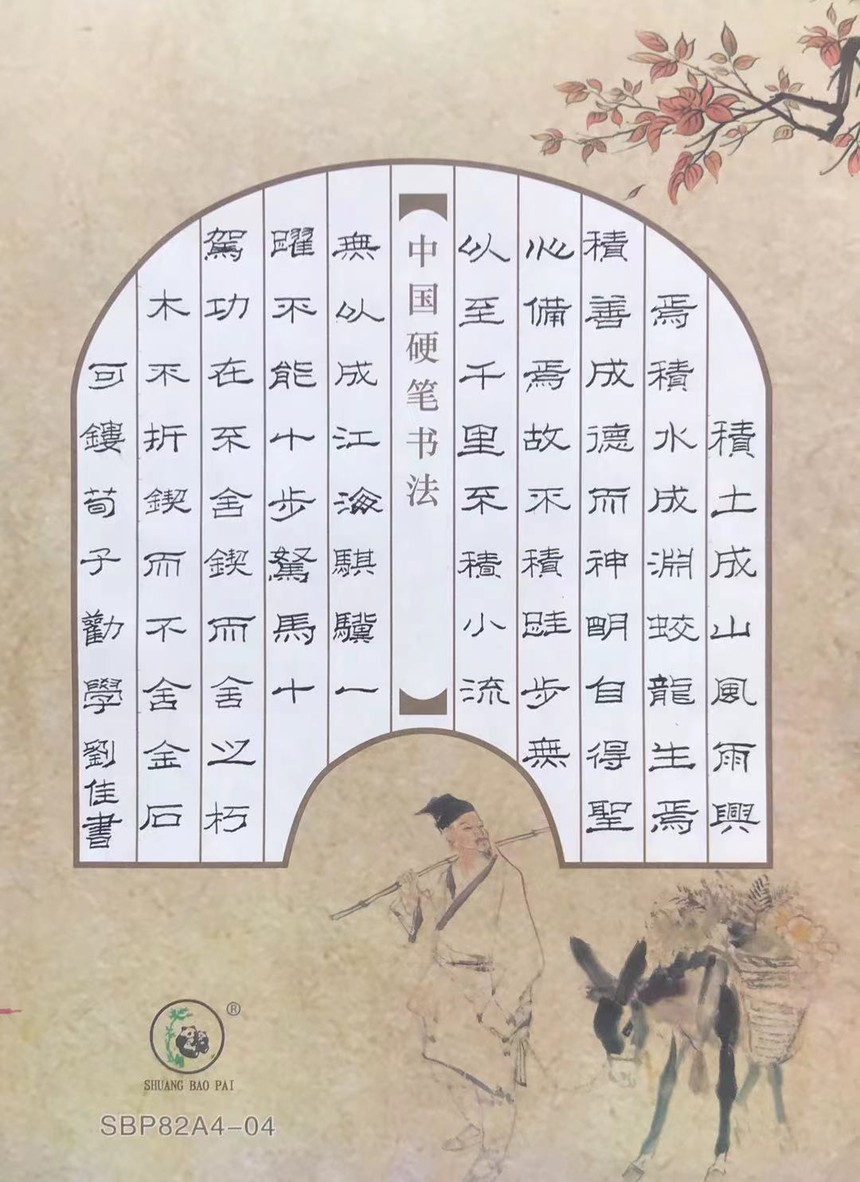 積土成山風雨興
焉積水成淵蛟龍生焉
積善成德而神明自得聖
心備焉故不積跬步無
以至千里不積小流
中国硬笔书法
無以成江海騏驥一
躍不能十步駑馬十
駕功在不舍鍥而舍之朽
木不折鍥而不舍金石
可鏤荀子勸學劉佳書
®
SHUANG BAO PAI
SBP82A4-04